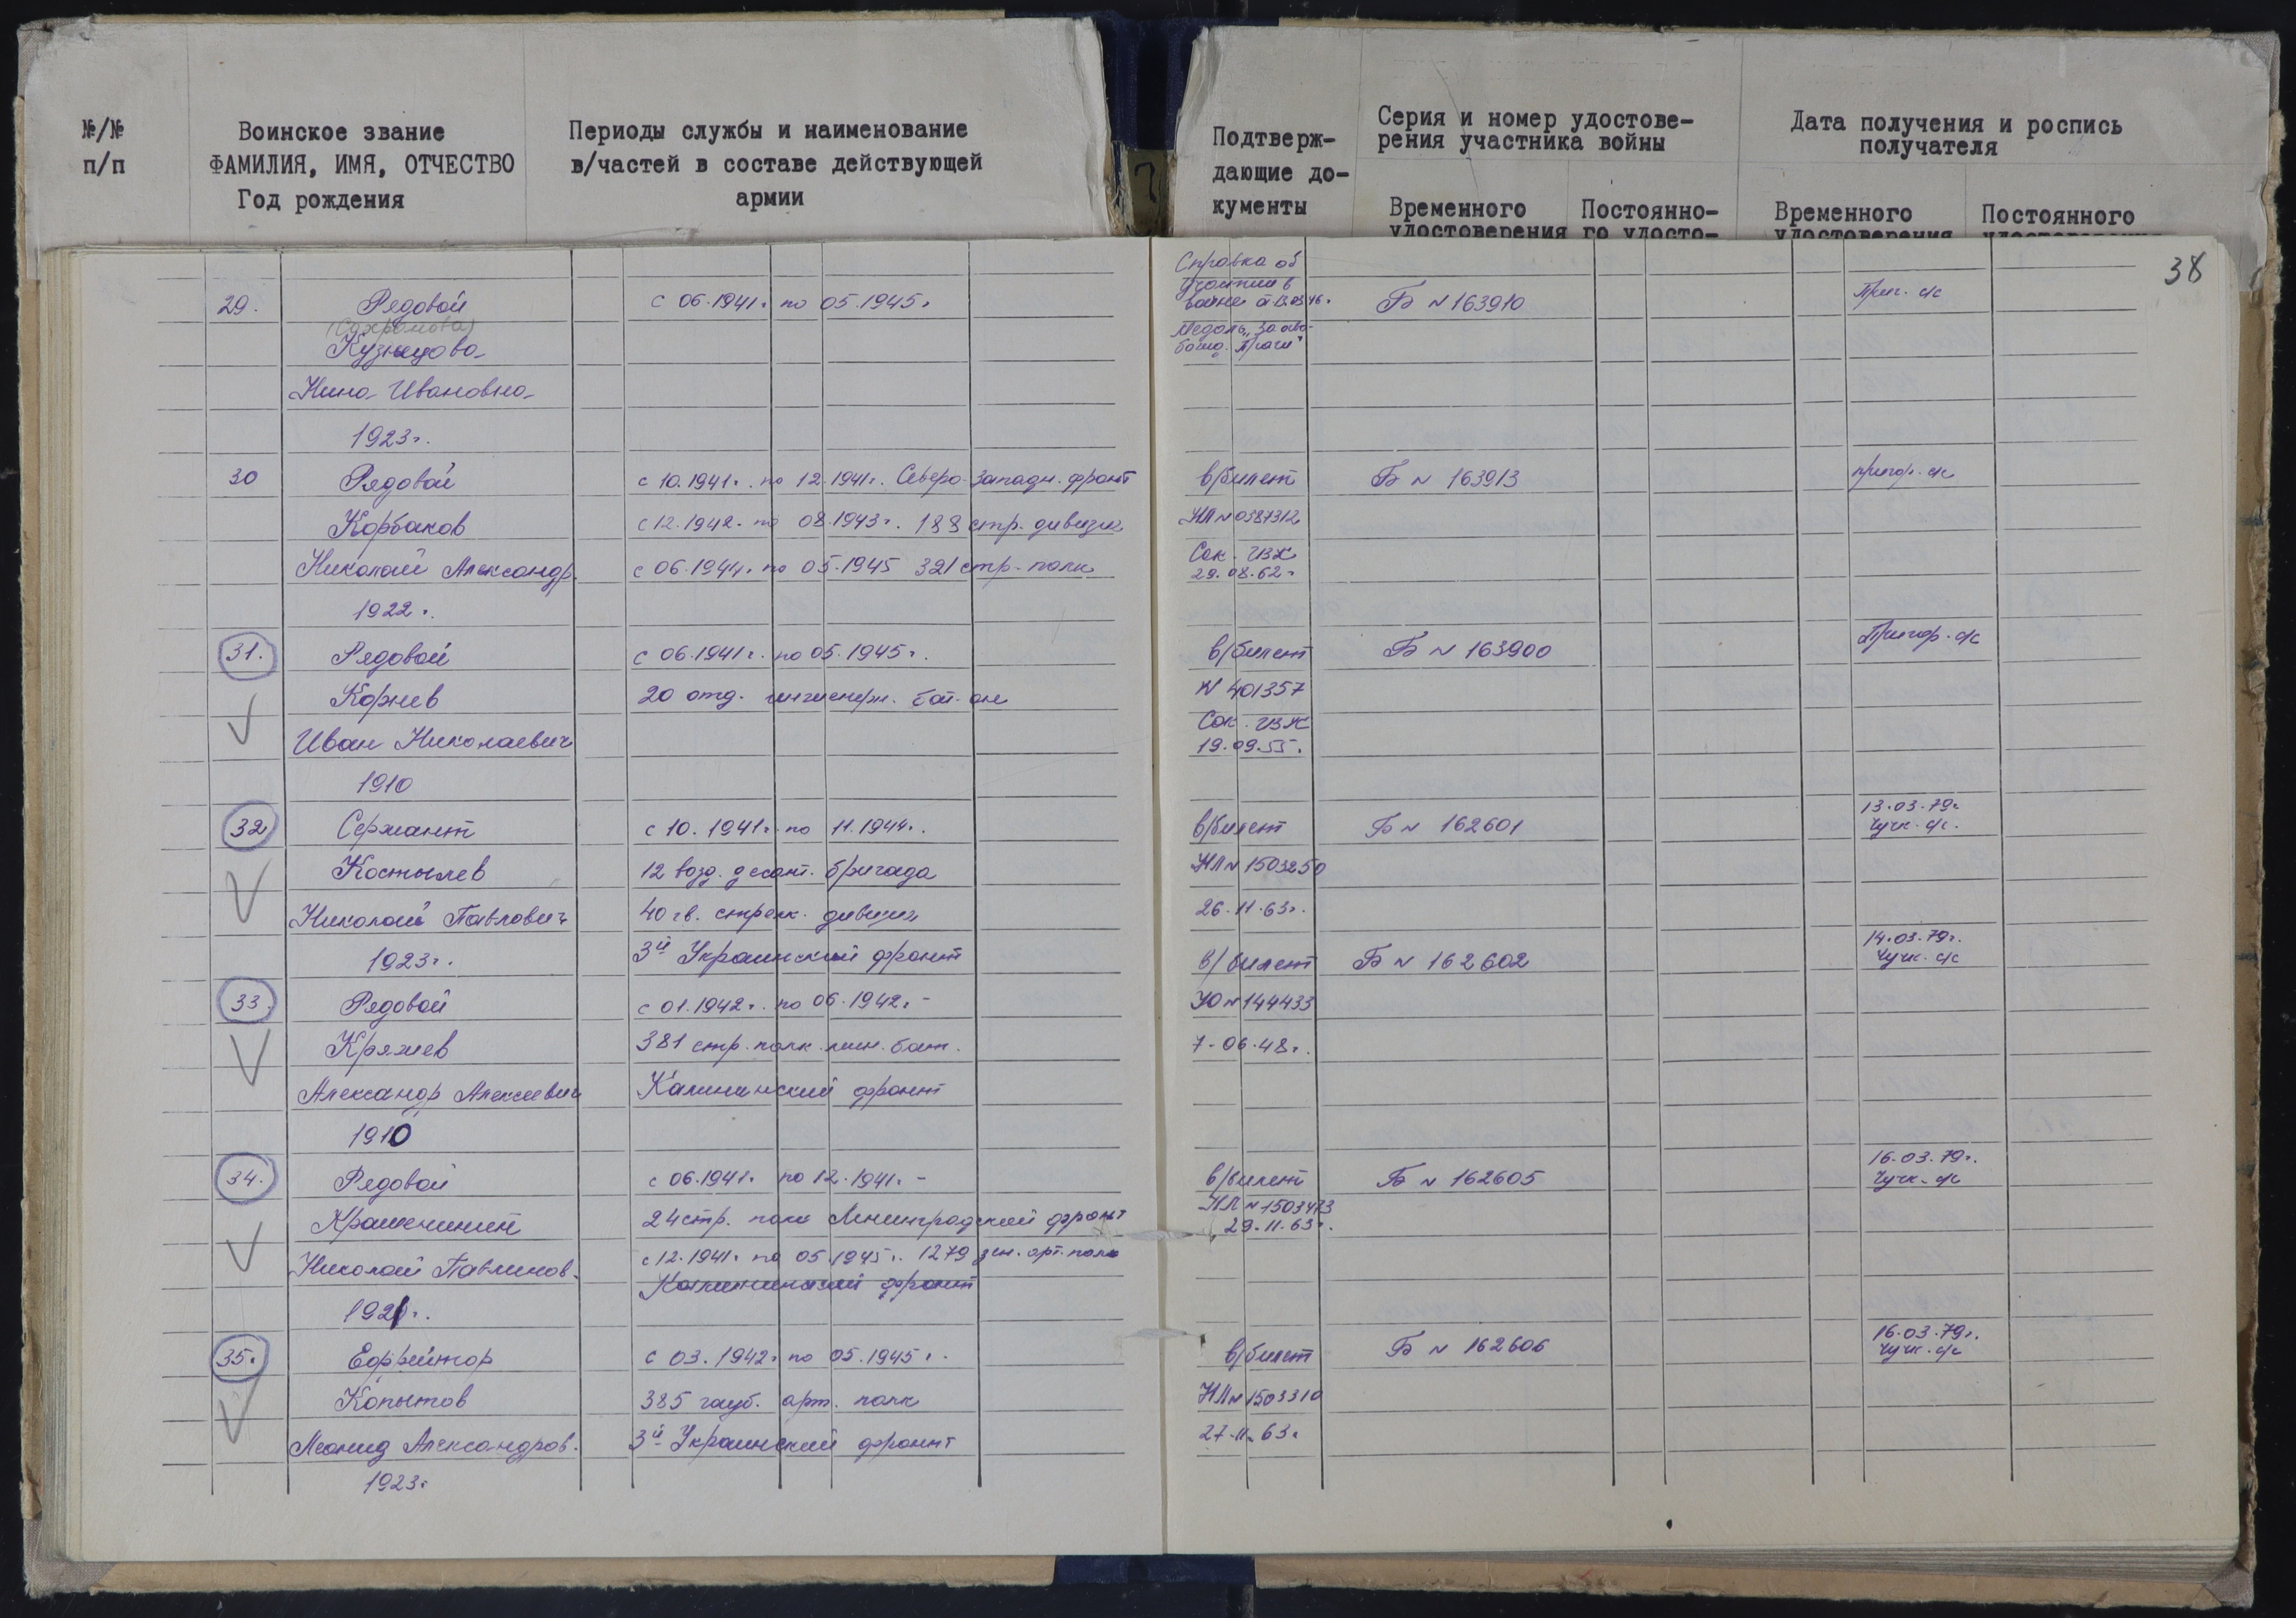 №/№
п/п
Воинское звание
ФАМИЛИЯ, ИМЯ, ОТЧЕСТВО
Год рождения
Периоды службы и наименование
в/частей в составе действующей
армии
Подтверж-
дающие до-
кументы
Серия и номер удостове-
рения участника войны
Временного
удостоверения
Постоянно-
го удосто-
Дата получения и роспись
получателя
Временного
удостоверения
Постоянного
удостоверения
38
29. Рядовой с 06.1941г. по 05.1945г. Справка об участии в войне Б N 163910 Приг. с/с
(Сахронова)
Кузнецова Медаль "За осво-
божд. Праги"
Нина Ивановна
1923г.
30 Рядовой с 10.1941г. по 12.1941г. Северо-Западн. фронт в/билет Б N 163913 пригор. с/с
Корбаков с 12.1942. по 08.1943г. 188 стр. дивизия НЛ N 0387312
Николай Александр. с 06.1944г. по 05.1945 321 стр. полк Сок. ГВК
29.08.62г.
1922г.
31. Рядовой с 06.1941г. по 05.1945г. в/билет Б N 163900 Пригор. с/с
Корнев 20 отд. инженерн. бат-он N 401357
Иван Николаевич Сок. ГВК
19.09.55.
1910
32 Сержант с 10.1941г. по 11.1944г. в/билет Б N 162601 13.03.79г.
Чучк. с/с.
Костылев 12 возд. десант. бригада НЛ N 1503250
Николай Павлович 40 гв. стрелк. дивизия 26.11.63г.
1923г. 3й Украинский фронт
в/билет Б N 162602 14.03.79г.
Чучк. с/с
33. Рядовой с 01.1942г. по 06.1942г. - УО N 144433
Кряжев 381 стр. полк мин. бат. 7-06.48г.
Александр Алексеевич Калининский фронт
1910
34. Рядовой с 06.1941г. по 12.1941г. - в/билет Б N 162605 16.03.79г.
Чучк. с/с
Крашенинин 24 стр. полк Ленинградский фронт НЛ N 1503473
29.11.63г.
Николай Павлинов. с 12.1941г. по 05.1945г. 1279 зен. арт. полк
Калининский фронт
1921г.
35. Ефрейтор с 03.1942г. по 05.1945г. в/билет Б N 162606 16.03.79г.
Чучк. с/с
Копытов 385 гауб. арт. полк НЛ N 1503310
Леонид Александров. 3й Украинский фронт 27.11.63г.
1923г